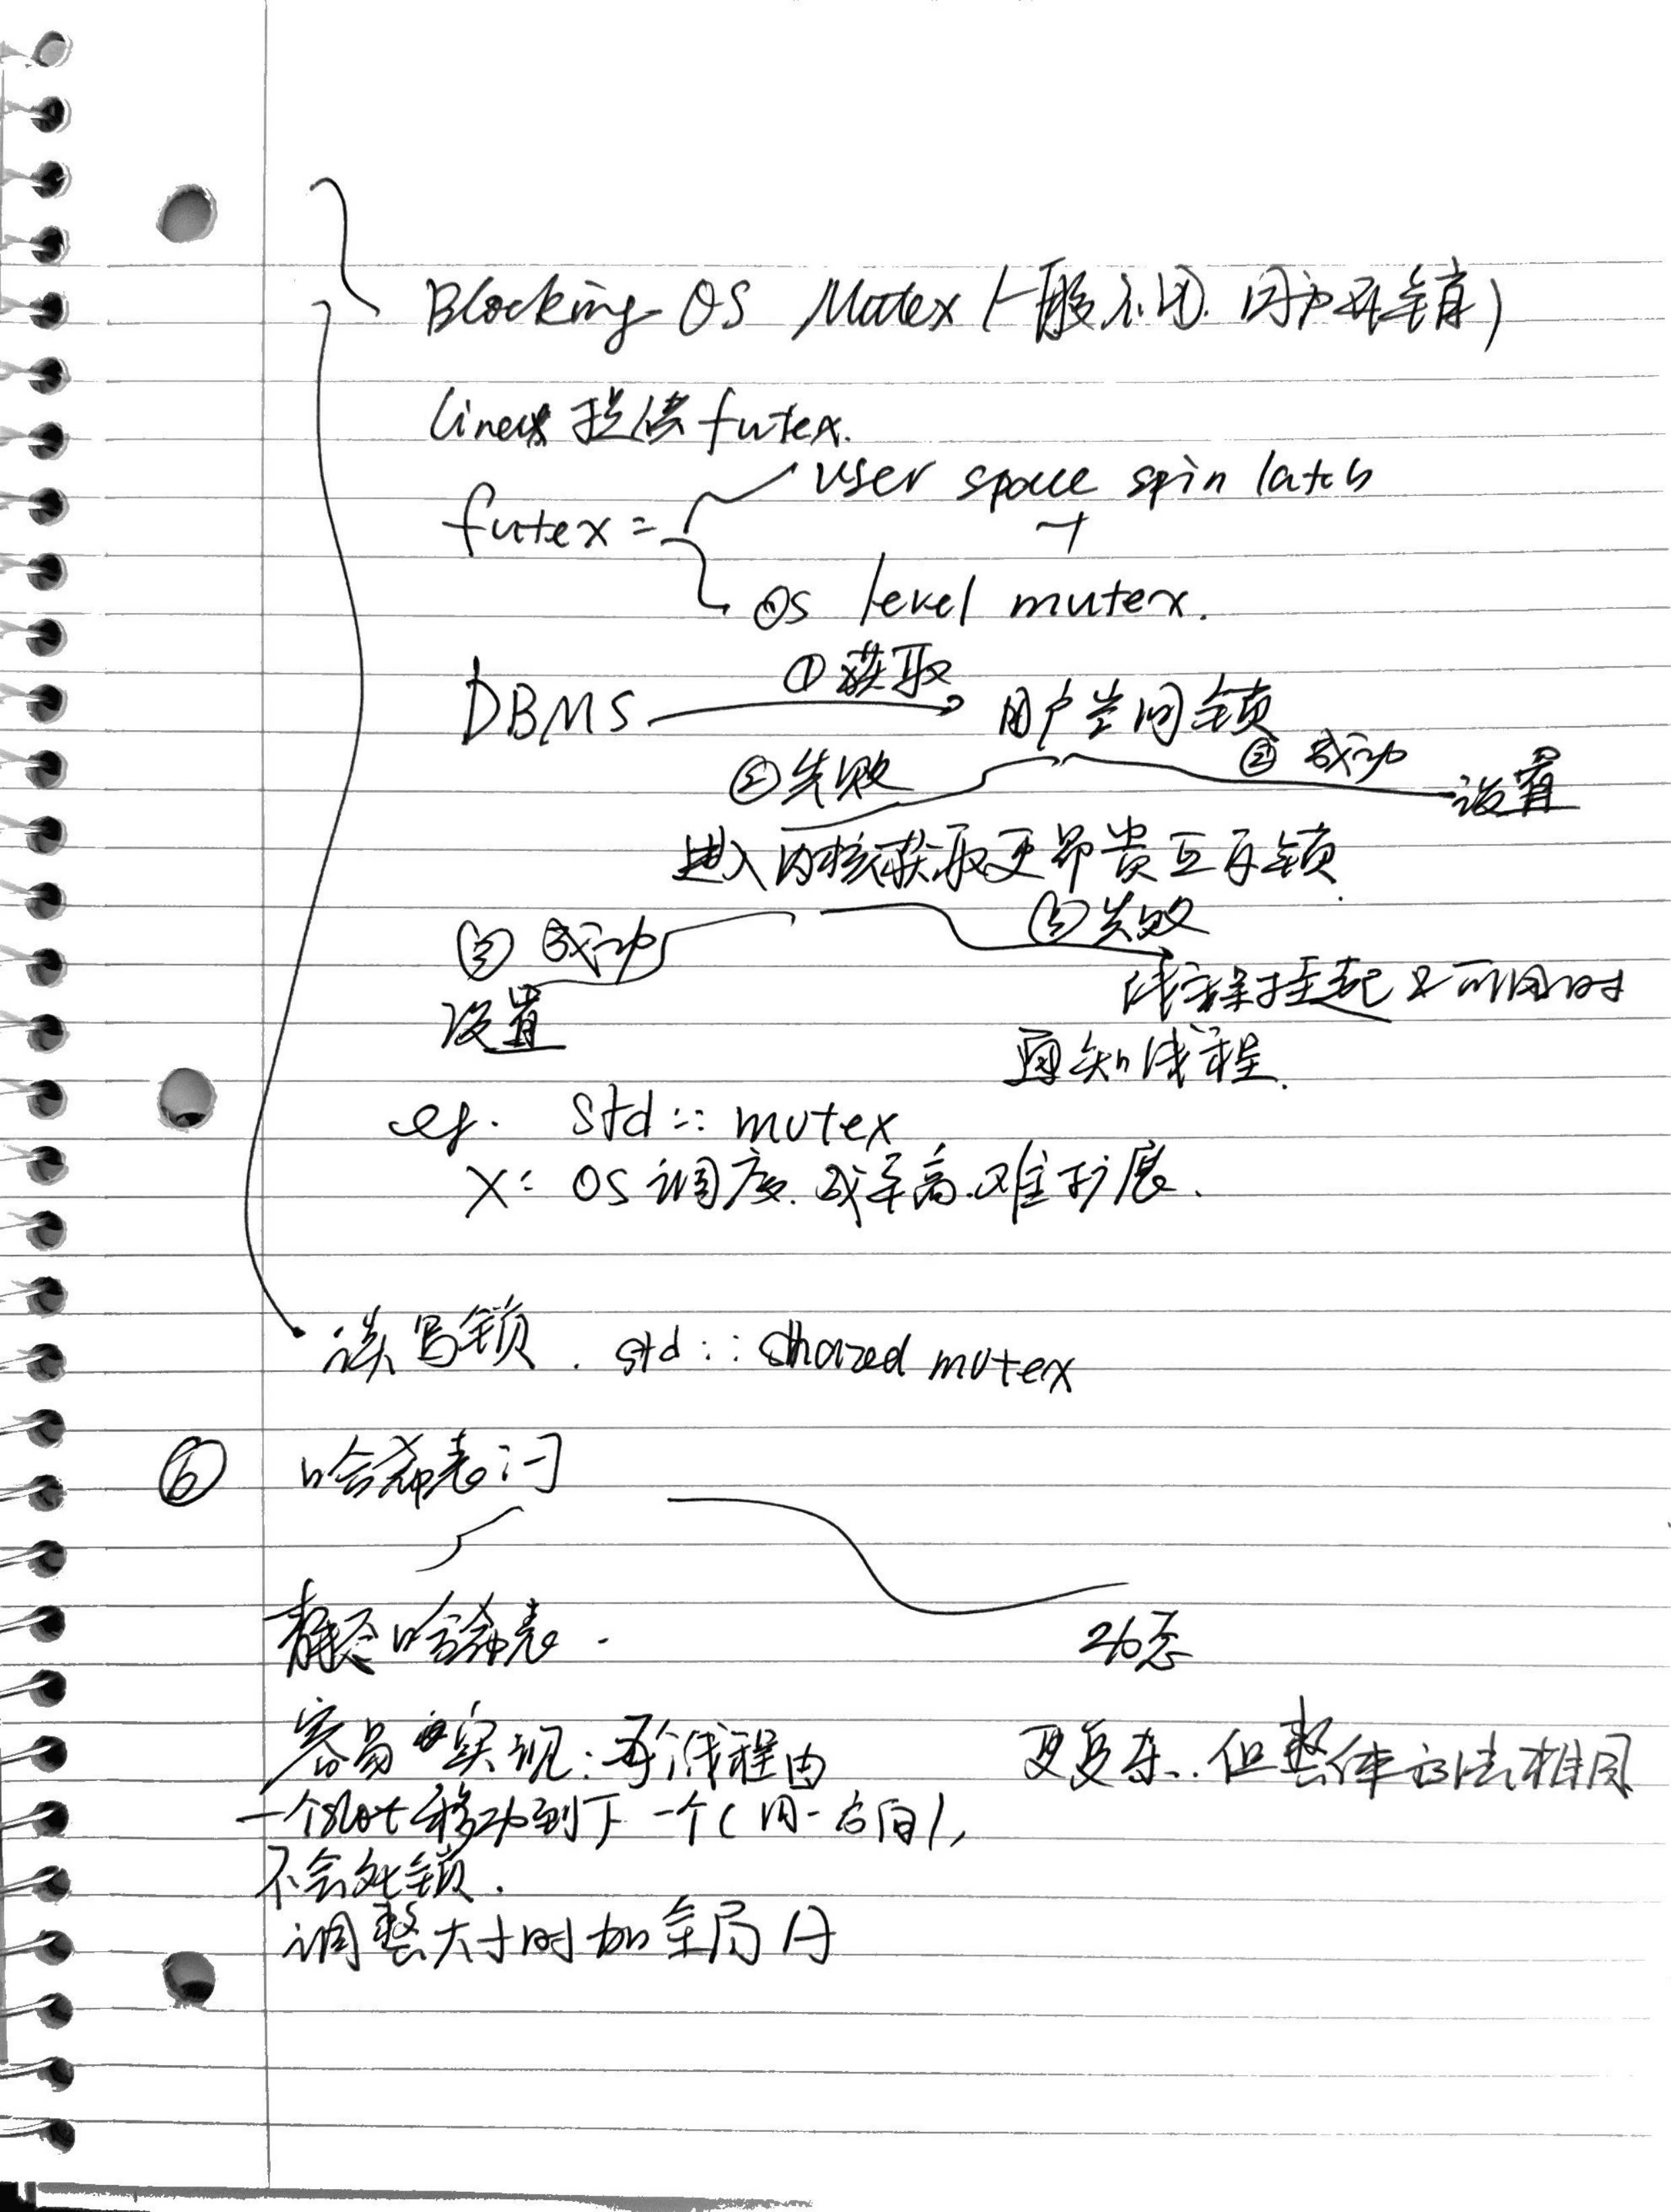 Blocking OS Mutex (一般不用. 用户开销)
Linux 提供 futex.
user space spin latch
futex = +
OS level mutex.
①获取
DBMS 用户空间锁
②失败 ② 成功 设置
进入内核获取更昂贵互斥锁.
③ 成功 ③失败
设置 线程挂起 可用时
通知线程.
eg. std::mutex
X: OS 调度. 成本高. 难扩展.
读写锁. std::shared mutex
⑥ 哈希表闩
静态哈希表. 动态
容易实现: 每个线程由 更复杂. 但整体方法相同
一个slot移动到下一个(同一方向),
不会死锁.
调整大小时加全局闩